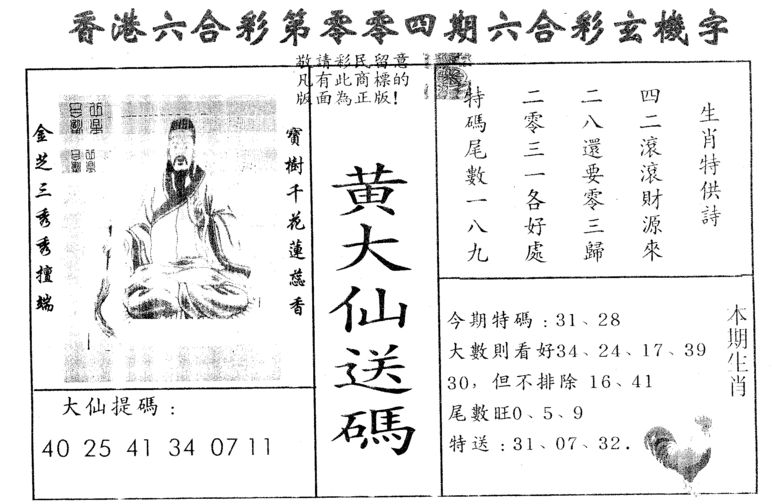 香港六合彩第零零四期六合彩玄機字
敬請彩民留意
凡有此商標的
版面為正版!
金芝三秀秀擅端
寶樹千花蓮蕊香
大仙提碼：
40 25 41 34 07 11
黃大仙送碼
生肖特供詩
四二滾滾財源來
二八還要零三歸
二零三一各好處
特碼尾數一八九
今期特碼:31、28
大數則看好34、24、17、39
30，但不排除 16、41
尾數旺0、5、9
特送:31、07、32.
本期生肖